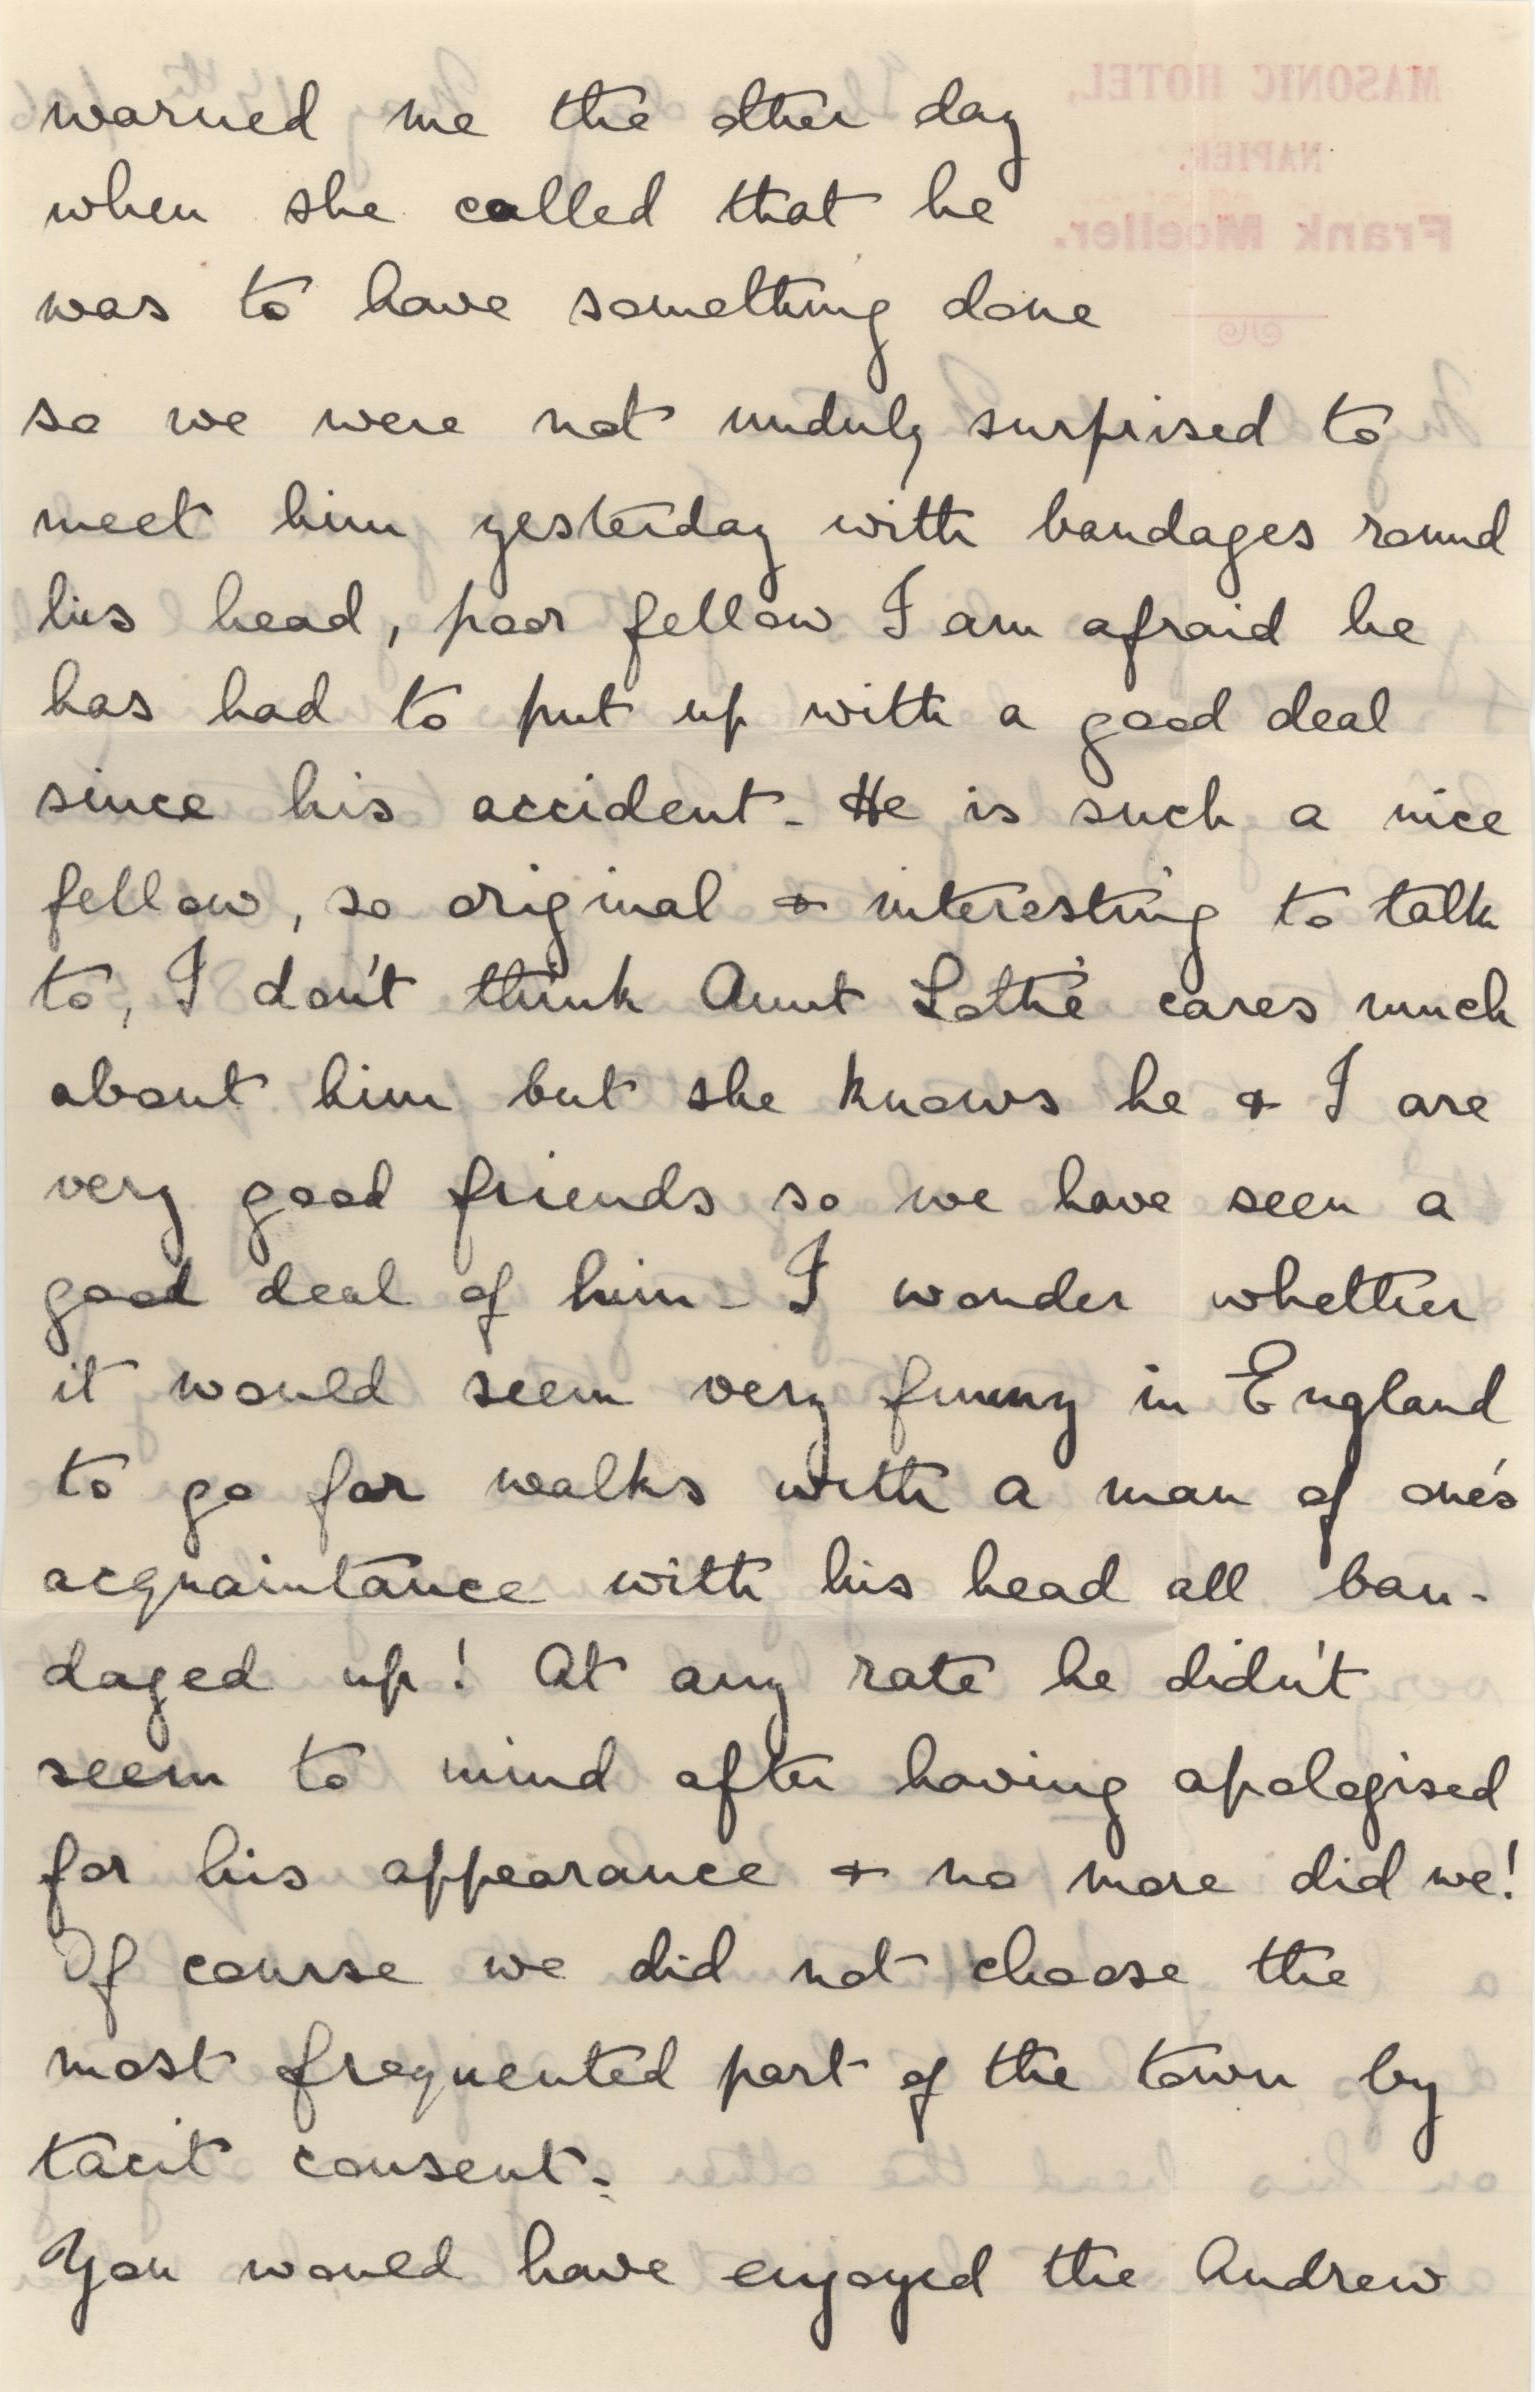 warned me the other day
when she called that he
was to have something done
so we were not unduly surprised to
meet him yesterday with bandages round
his head, poor fellow I am afraid he
has had to put up with a good deal
since his accident - He is such a nice
fellow, so original & interesting to talk
to, I don't think Aunt Lottie cares much
about him but she knows he & I are
very good friends so we have seen a
good deal of him - I wonder whether
it would seem very funny in England
to go for walks with a man of one's
acquaintance with his head all ban-
daged up! At any rate he didn't
seem to mind after having apologised
for his appearance & no more did we!
Of course we did not choose the
most frequented part of the town by
tacit consent -
You would have enjoyed the Andrew
MASONIC HOTEL,
NAPIER.
Frank Moeller.